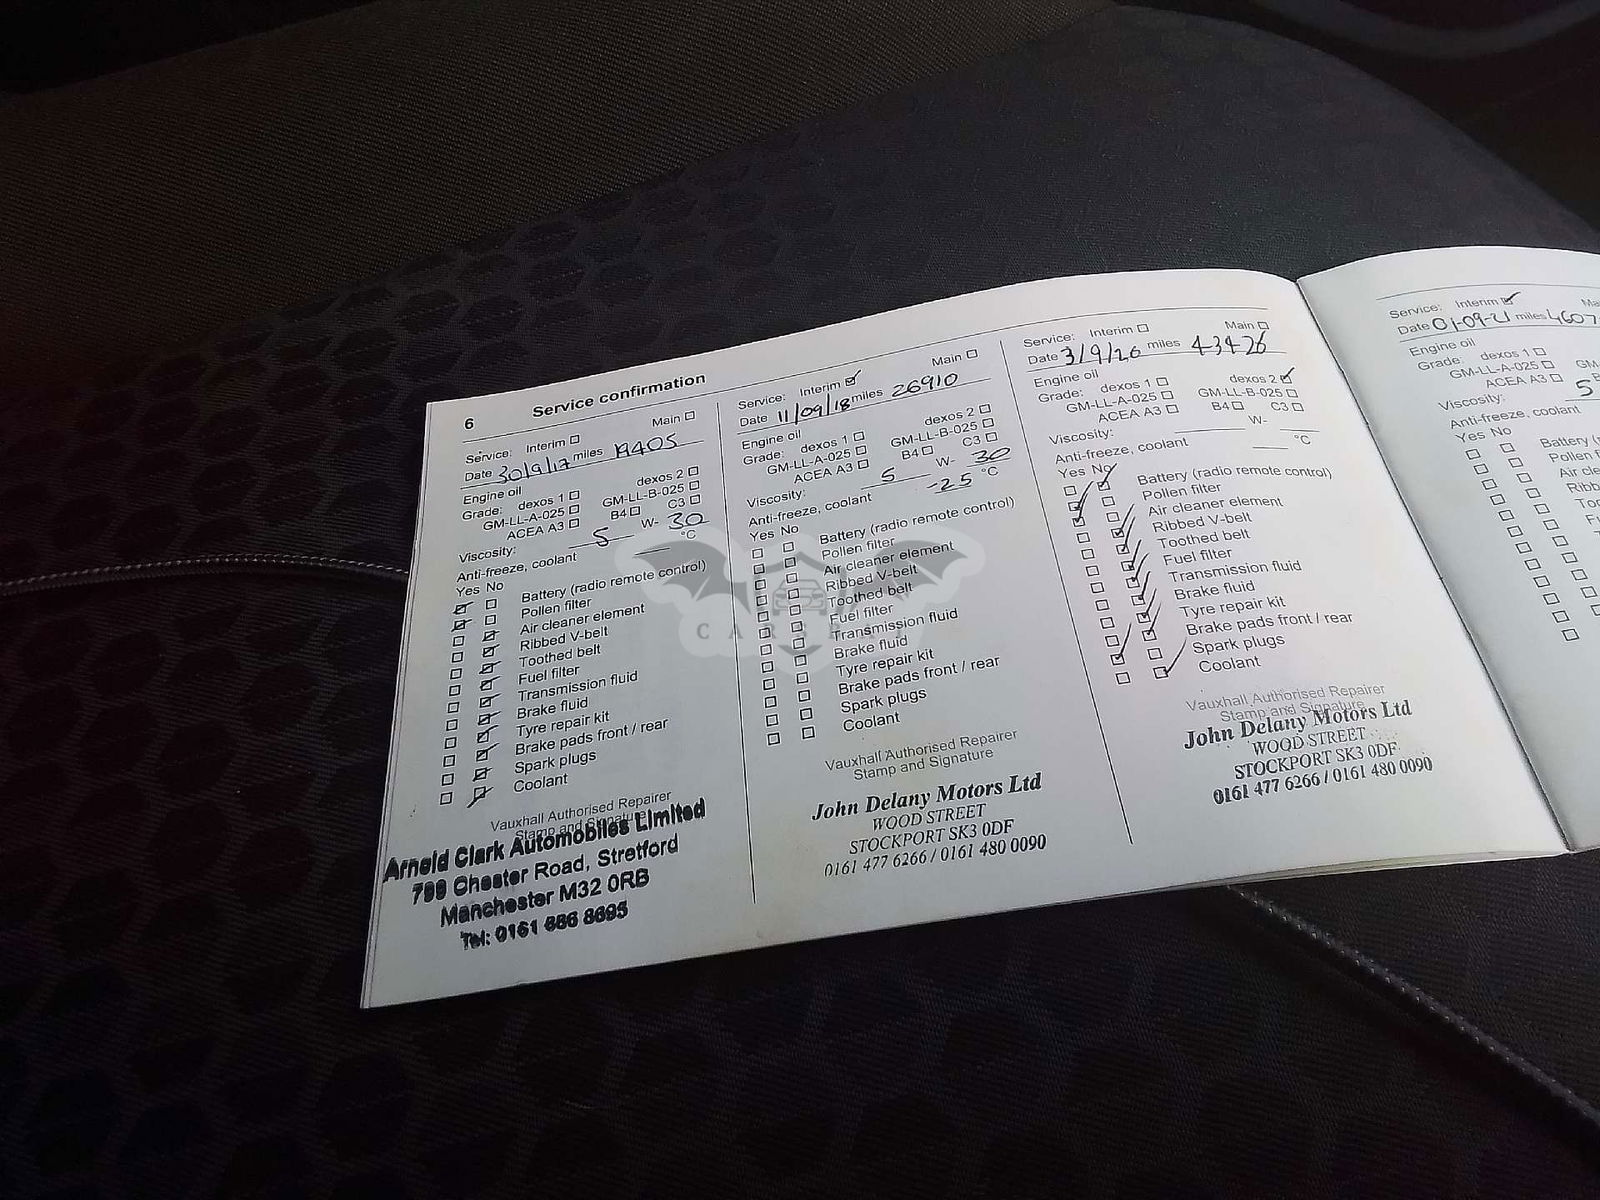 6 Service confirmation
Service: Interim Main
Date 30/9/17 miles 19405
Engine oil
Grade: dexos 1 dexos 2
GM-LL-A-025 GM-LL-B-025
ACEA A3 B4 C3
Viscosity: 5 W- 30
Anti-freeze, coolant °C
Yes No
Battery (radio remote control)
Pollen filter
Air cleaner element
Ribbed V-belt
Toothed belt
Fuel filter
Transmission fluid
Brake fluid
Tyre repair kit
Brake pads front / rear
Spark plugs
Coolant
Vauxhall Authorised Repairer
Stamp and Signature
Arnold Clark Automobiles Limited
799 Chester Road, Stretford
Manchester M32 0RB
Tel: 0161 886 8695
Service: Interim Main
Date 11/09/18 miles 26910
Engine oil
Grade: dexos 1 dexos 2
GM-LL-A-025 GM-LL-B-025
ACEA A3 B4 C3
Viscosity: 5 W- 30
Anti-freeze, coolant -25 °C
Yes No
Battery (radio remote control)
Pollen filter
Air cleaner element
Ribbed V-belt
Toothed belt
Fuel filter
Transmission fluid
Brake fluid
Tyre repair kit
Brake pads front / rear
Spark plugs
Coolant
Vauxhall Authorised Repairer
Stamp and Signature
John Delany Motors Ltd
WOOD STREET
STOCKPORT SK3 0DF
0161 477 6266 / 0161 480 0090
Service: Interim Main
Date 3/9/20 miles 43426
Engine oil
Grade: dexos 1 dexos 2
GM-LL-A-025 GM-LL-B-025
ACEA A3 B4 C3
Viscosity: W-
Anti-freeze, coolant °C
Yes No
Battery (radio remote control)
Pollen filter
Air cleaner element
Ribbed V-belt
Toothed belt
Fuel filter
Transmission fluid
Brake fluid
Tyre repair kit
Brake pads front / rear
Spark plugs
Coolant
Vauxhall Authorised Repairer
Stamp and Signature
John Delany Motors Ltd
WOOD STREET
STOCKPORT SK3 0DF
0161 477 6266 / 0161 480 0090
Service: Interim
Date 01-09-21 miles 4607
Engine oil
Grade: dexos 1
GM-LL-A-025
ACEA A3
Viscosity: 5
Anti-freeze, coolant
Yes No